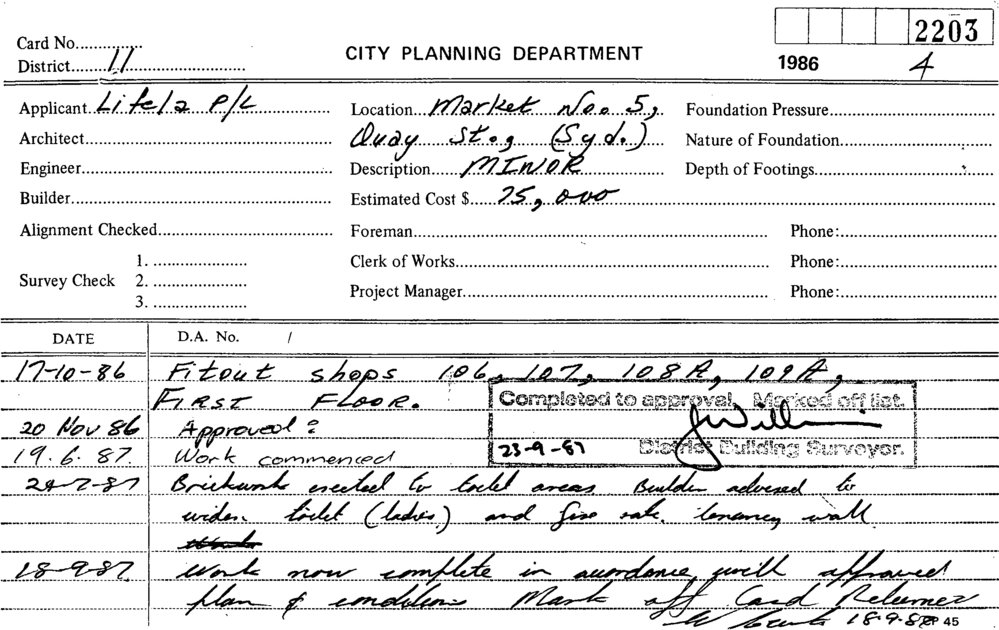 2203
Card No.
CITY PLANNING DEPARTMENT
District 11
1986 4
Applicant Litela P/L Location Market No. 5, Foundation Pressure
Architect Quay St., (Syd.) Nature of Foundation
Engineer Description MINOR Depth of Footings
Builder Estimated Cost $ 25,000
Alignment Checked Foreman Phone:
1. Clerk of Works Phone:
Survey Check 2.
3. Project Manager Phone:
DATE D.A. No. /
17-10-86 Fitout shops 106, 107, 108A, 109A,
FIRST FLOOR.
Completed to approval. Marked off list.
20 Nov 86 Approved?
23-9-87 District Building Surveyor.
19.6.87. Work commenced
Brickwork erected to toilet areas. Builder advised to
widen toilet (ladies) and fire rate tenancy wall
18-9-87. Work now complete in accordance with approved
plan & conditions Mark off Card Returned
18.9.87 45